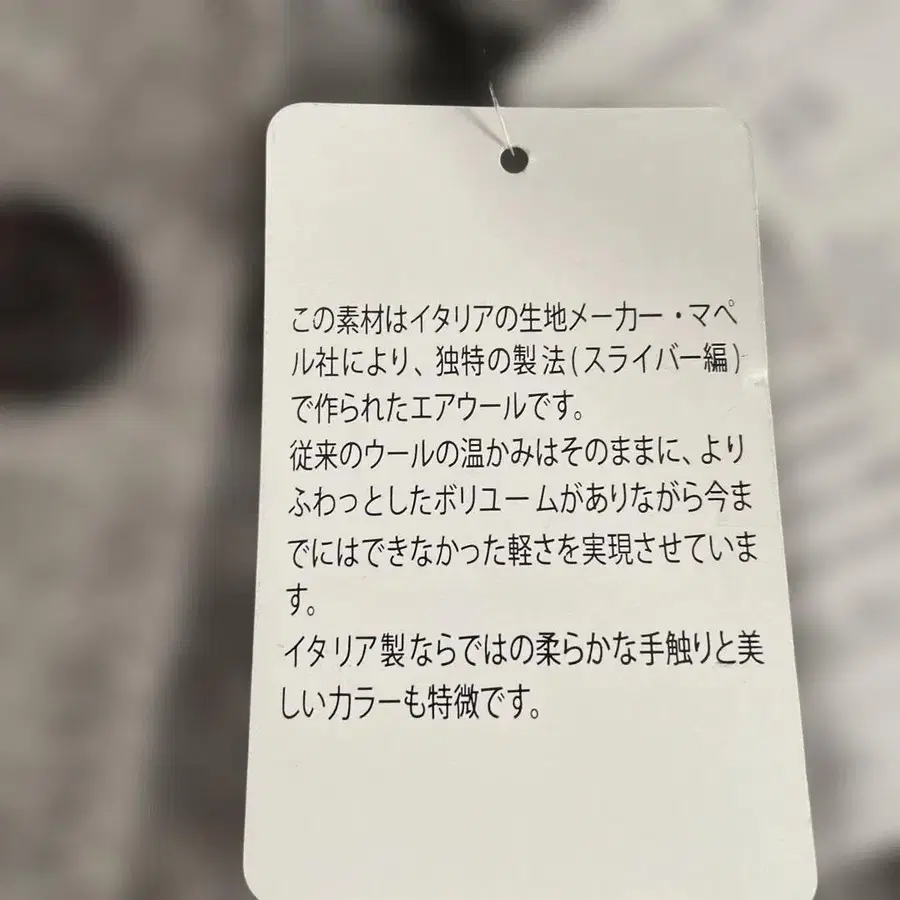 この素材はイタリアの生地メーカー・マペ
ル社により、独特の製法(スライバー編)
で作られたエアウールです。
従来のウールの温かみはそのままに、より
ふわっとしたボリュームがありながら今ま
でにはできなかった軽さを実現させていま
す。
イタリア製ならではの柔らかな手触りと美
しいカラーも特微です。